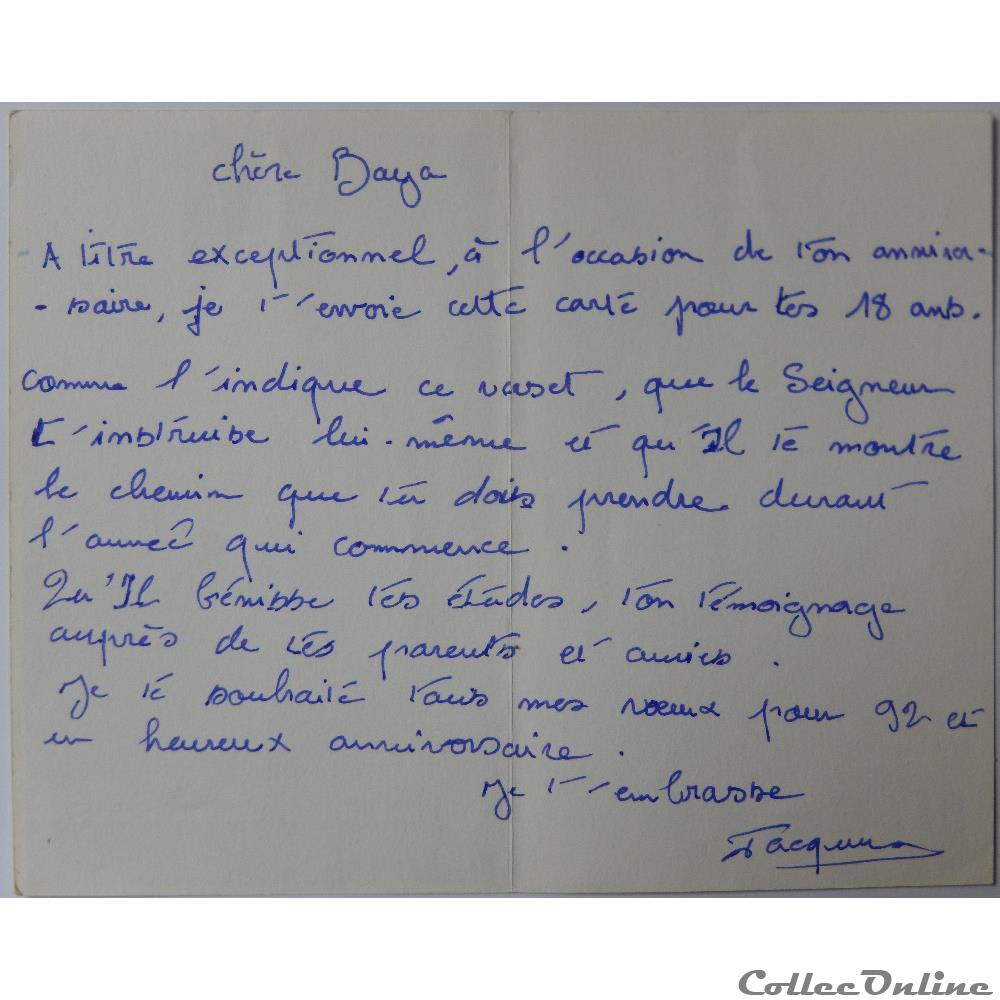 Chère Baya
A titre exceptionnel, à l'occasion de ton anniver-
-saire, je t'envoie cette carte pour tes 18 ans.
Comme l'indique ce verset, que le Seigneur
t'instruise lui-même et qu'Il te montre
le chemin que tu dois prendre durant
l'année qui commence.
Qu'Il bénisse tes études, ton témoignage
auprès de tes parents et amies.
Je te souhaite tous mes vœux pour 92 et
un heureux anniversaire.
Je t'embrasse
CollecOnline